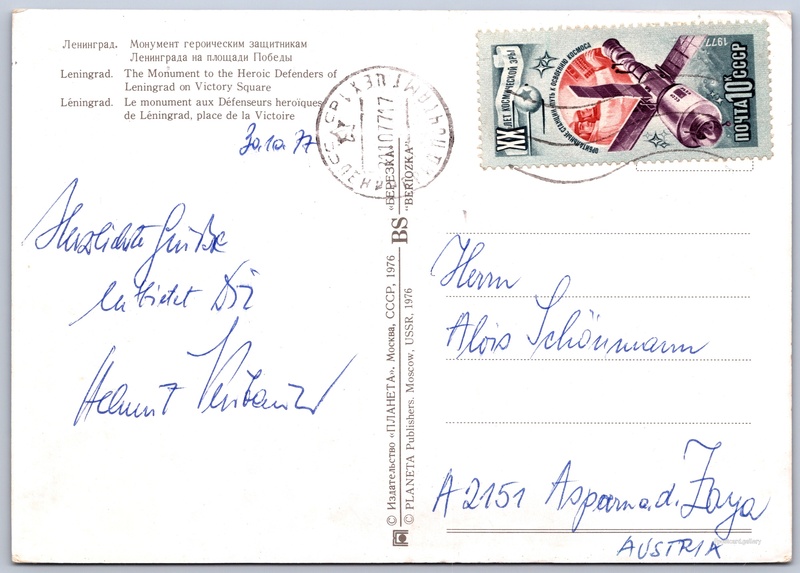 Ленинград. Монумент героическим защитникам
Ленинграда на площади Победы
Leningrad. The Monument to the Heroic Defenders of
Leningrad on Victory Square
Léningrad. Le monument aux Défenseurs heroïques
de Léningrad, place de la Victoire
Herzliche Grüße
entbietet Dir
Helmut
© Издательство «ПЛАНЕТА». Москва, СССР, 1976
© PLANETA Publishers. Moscow, USSR. 1976
BS „БЕРЕЗКА"
"BERIOZKA"
XX ЛЕТ КОСМИЧЕСКОЙ ЭРЫ
ОРБИТАЛЬНЫЕ СТАНЦИИ-ПУТЬ К ОСВОЕНИЮ КОСМОСА
1977
ПОЧТА 10К СССР
Herrn
Alois Schönmann
A 2151 Asparn a. d. Zaya
AUSTRIA